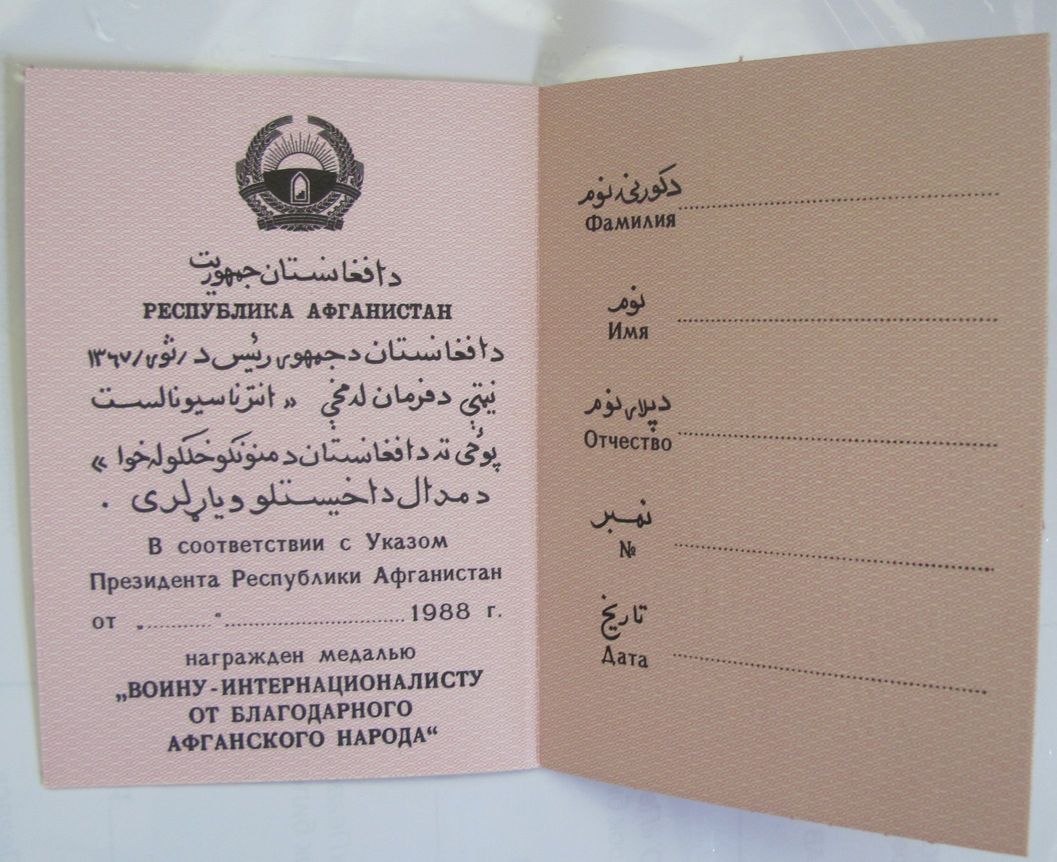 دافغانستان جمهوریت
РЕСПУБЛИКА АФГАНИСТАН
دافغانستان دجمهوری رئیس د /ثوی/ ۱۳۶۷
نیټې دفرمان له مخې » انترناسیونالست
پوځی ته دافغانستان د منونکو خلکو له خوا «
د مدال داخیستلو ویاړلری .
В соответствии с Указом
Президента Республики Афганистан
от „..........." .............................. 1988 г.
награжден медалью
„ВОИНУ-ИНТЕРНАЦИОНАЛИСТУ
ОТ БЛАГОДАРНОГО
АФГАНСКОГО НАРОДА“
دکورنۍ نوم
Фамилия
نوم
Имя
دپلار نوم
Отчество
نمبر
№
تاریخ
Дата